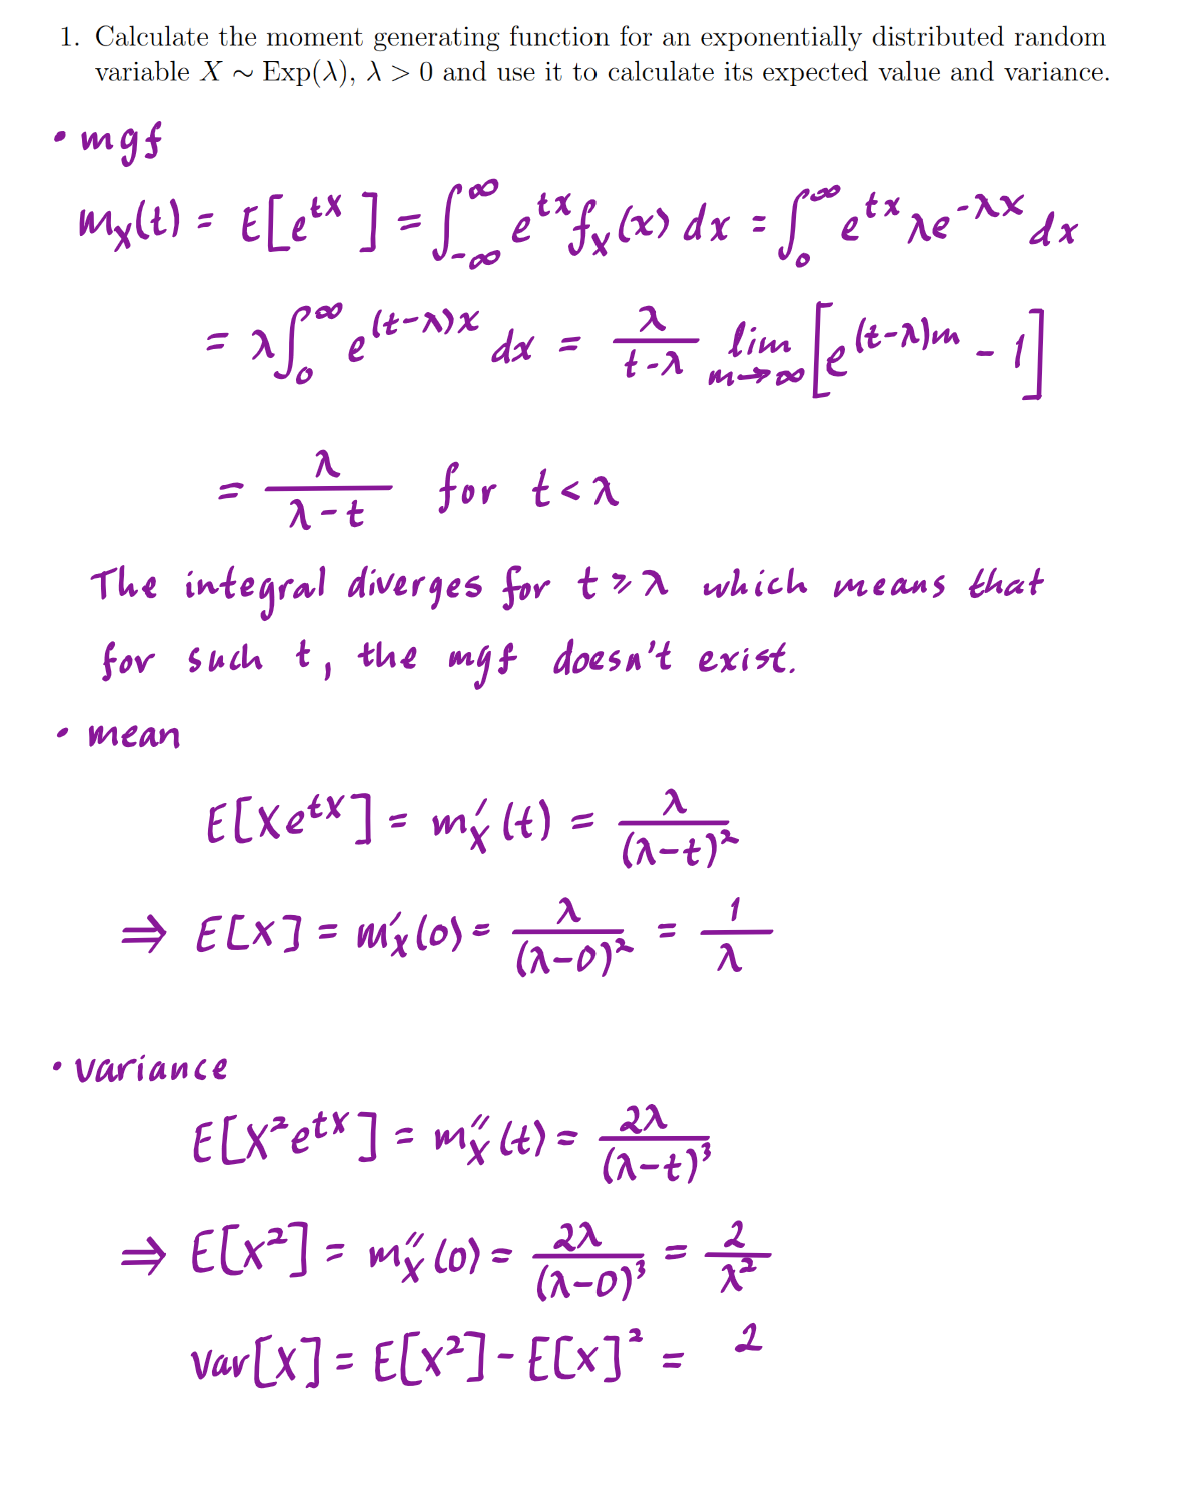 1. Calculate the moment generating function for an exponentially distributed random
variable X ∼ Exp(λ), λ > 0 and use it to calculate its expected value and variance.
• mgf
m_X(t) = E[e^{tX}] = ∫_{-∞}^{∞} e^{tx} f_X(x) dx = ∫_0^∞ e^{tx} λe^{-λx} dx
= λ∫_0^∞ e^{(t-λ)x} dx = λ/(t-λ) lim_{m→∞} [e^{(t-λ)m} - 1]
= λ/(λ-t) for t<λ
The integral diverges for t≥λ which means that
for such t, the mgf doesn't exist.
• mean
E[Xe^{tX}] = m'_X(t) = λ/(λ-t)²
⇒ E[X] = m'_X(0) = λ/(λ-0)² = 1/λ
• variance
E[X²e^{tX}] = m''_X(t) = 2λ/(λ-t)³
⇒ E[X²] = m''_X(0) = 2λ/(λ-0)³ = 2/λ²
Var[X] = E[X²] - E[X]² = 2